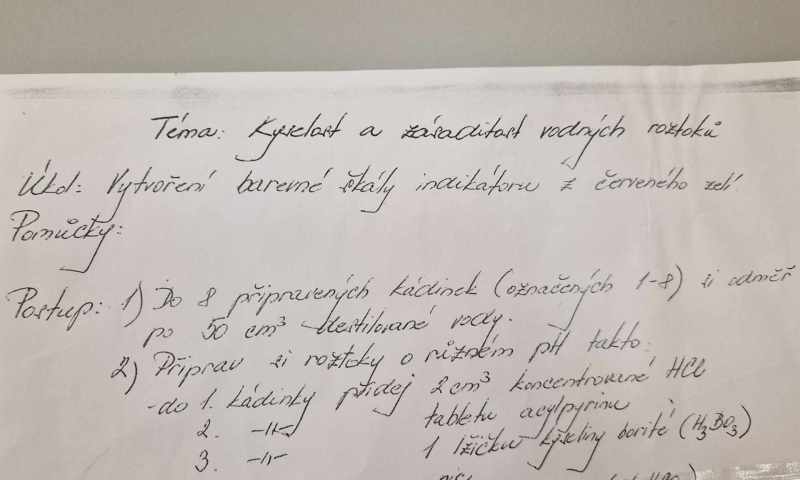 Téma: Kyselost a zásaditost vodných roztoků
Úkol: Vytvoření barevné škály indikátoru z červeného zelí
Pomůcky:
Postup: 1) Do 8 připravených kádinek (označených 1-8) si odměř
po 50 cm³ destilované vody.
2) Připrav si roztoky o různém pH takto:
-do 1. kádinky přidej 2 cm³ koncentrované HCl
2. -"- tabletu acylpyrinu
3. -"- 1 lžičku kyseliny borité (H₃BO₃)